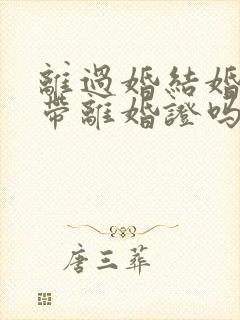 離過婚結婚
帶離婚證嗎
唐三葬